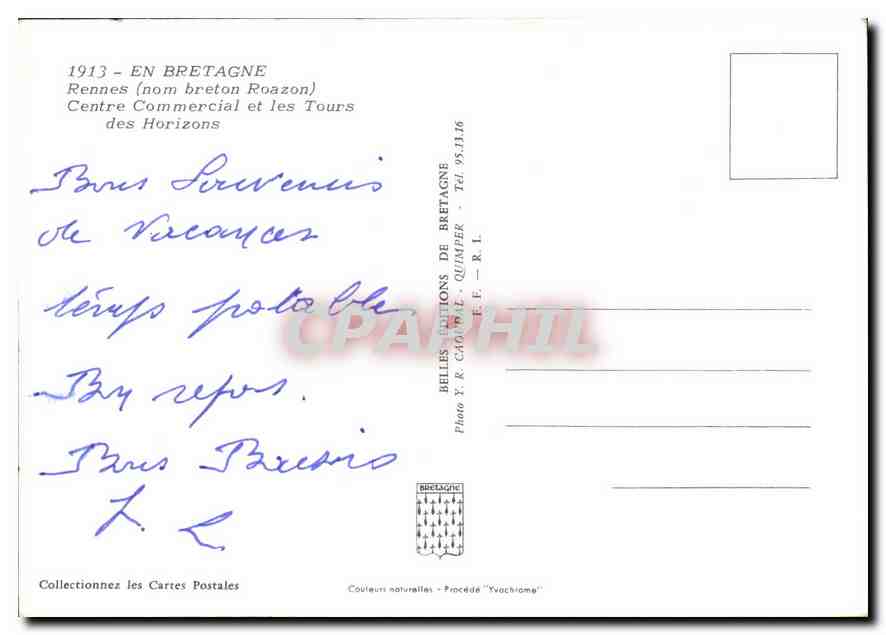 1913 - EN BRETAGNE
Rennes (nom breton Roazon)
Centre Commercial et les Tours
des Horizons
Bons Souvenirs
de Vacances
temps potable
Bon repos.
Bons Baisers
L. L
Collectionnez les Cartes Postales
BELLES ÉDITIONS DE BRETAGNE
Photo Y. R. CAOUDAL - QUIMPER - Tél. 95.13.16
F. F. — R. I.
BRETAGNE
Couleurs naturelles - Procédé "Yvochrome"
CPAPHIL